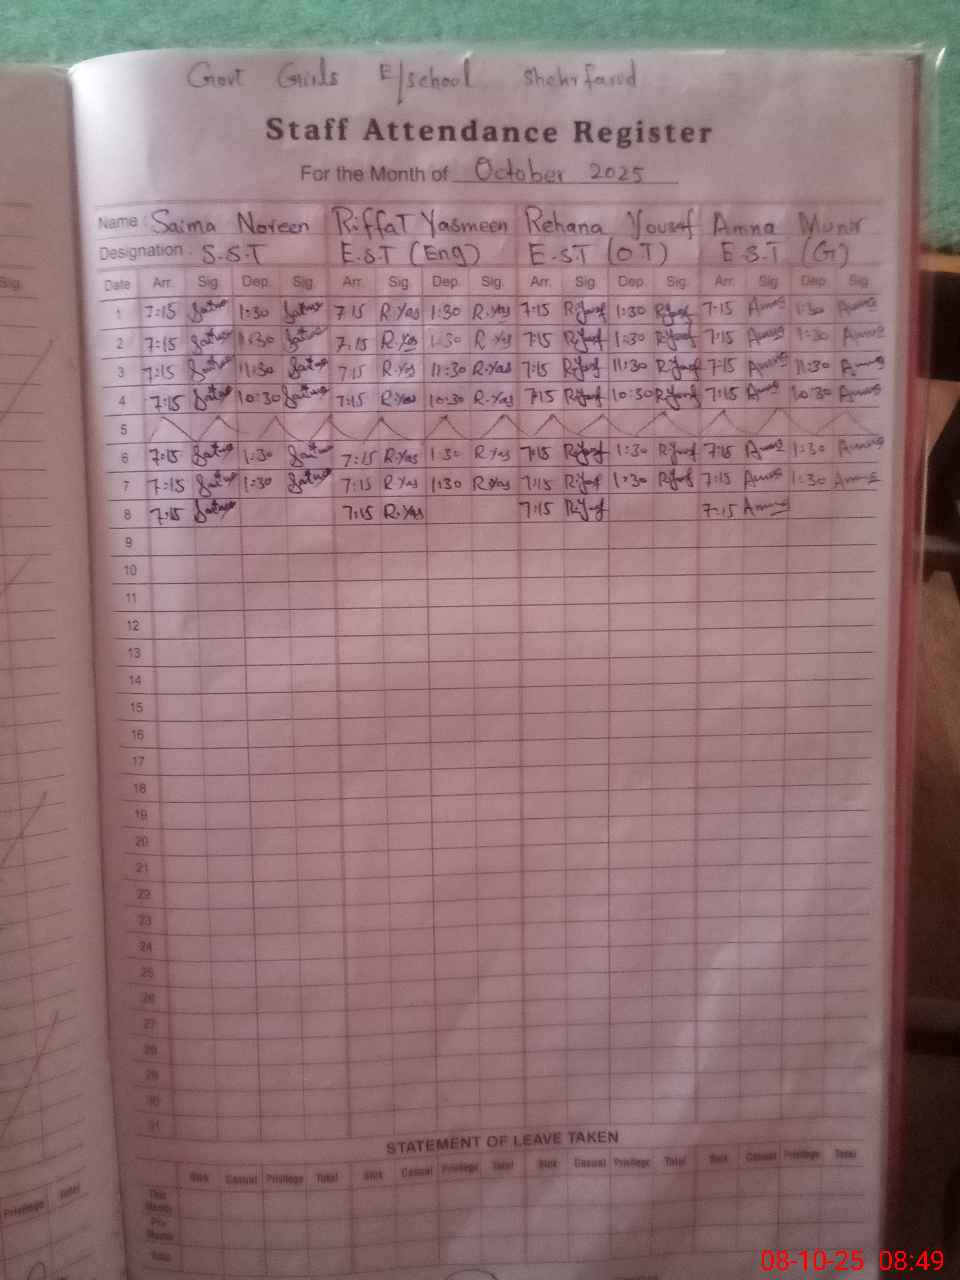 Govt Girls E/school Shehrfarid
Staff Attendance Register
For the Month of October 2025
Name : Saima Noreen Riffat Yasmeen Rehana Yousaf Amna Munir
Designation : S.S.T E.S.T (Eng) E.S.T (OT) E.S.T (G)
Sig.
Date Arr. Sig. Dep. Sig. Arr. Sig. Dep. Sig. Arr. Sig Dep. Sig. Arr. Sig. Dep. Sig.
1 7:15 1:30 7:15 R.Yas 1:30 R.Yas 7:15 R.Yousf 1:30 R.Yousf 7:15 Amna 1:30 Amna
2 7:15 1:30 7:15 R.Yas 1:30 R.Yas 7:15 R.Yousf 1:30 R.Yousf 7:15 Amna 1:30 Amna
3 7:15 11:30 7:15 R.Yas 11:30 R.Yas 7:15 R.Yousf 11:30 R.Yousf 7:15 Amna 11:30 Amna
4 7:15 10:30 7:15 R.Yas 10:30 R.Yas 7:15 R.Yousf 10:30 R.Yousf 7:15 Amna 10:30 Amna
5
6 7:15 1:30 7:15 R.Yas 1:30 R.Yas 7:15 R.Yousf 1:30 R.Yousf 7:15 Amna 1:30 Amna
7 7:15 1:30 7:15 R.Yas 1:30 R.Yas 7:15 R.Yousf 1:30 R.Yousf 7:15 Amna 1:30 Amna
8 7:15 7:15 R.Yas 7:15 R.Yousf 7:15 Amna
9
10
11
12
13
14
15
16
17
18
19
20
21
22
23
24
25
26
27
28
29
30
31
STATEMENT OF LEAVE TAKEN
Sick Casual Privilege Total Sick Casual Privilege Total Sick Casual Privilege Total Sick Casual Privilege Total
This Month
Pre. Month
Total
Privilege Total
08-10-25 08:49